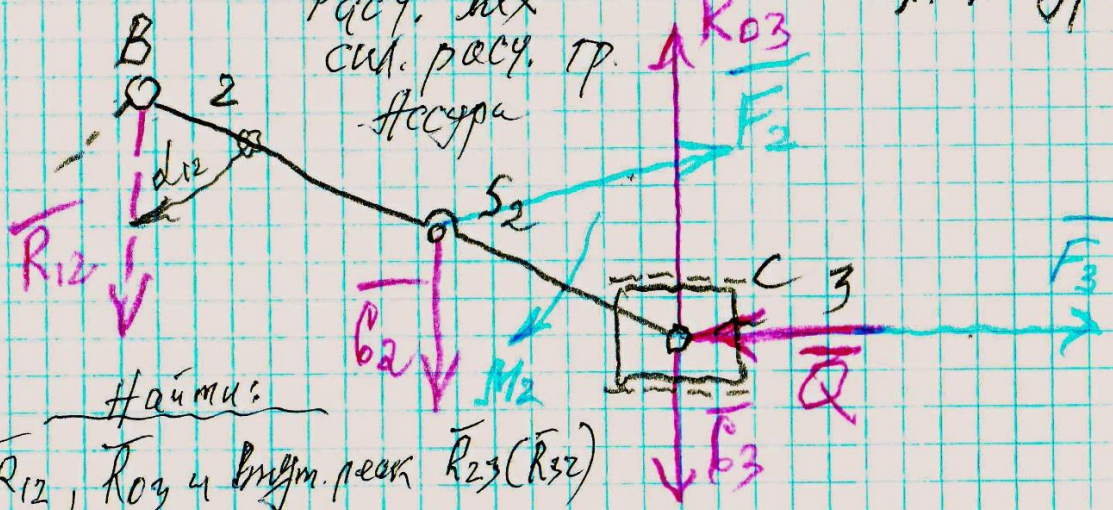 расч. мех
сил. расч. гр.
Ассура
B
2
α₁₂
R̅₁₂
S₂
F̅₂
R₀₃
G̅₂
M₂
C
3
F̅₃
Q̅
G̅₃
Найти:
R̅₁₂, R̅₀₃ и внут. реак R̅₂₃(R̅₃₂)